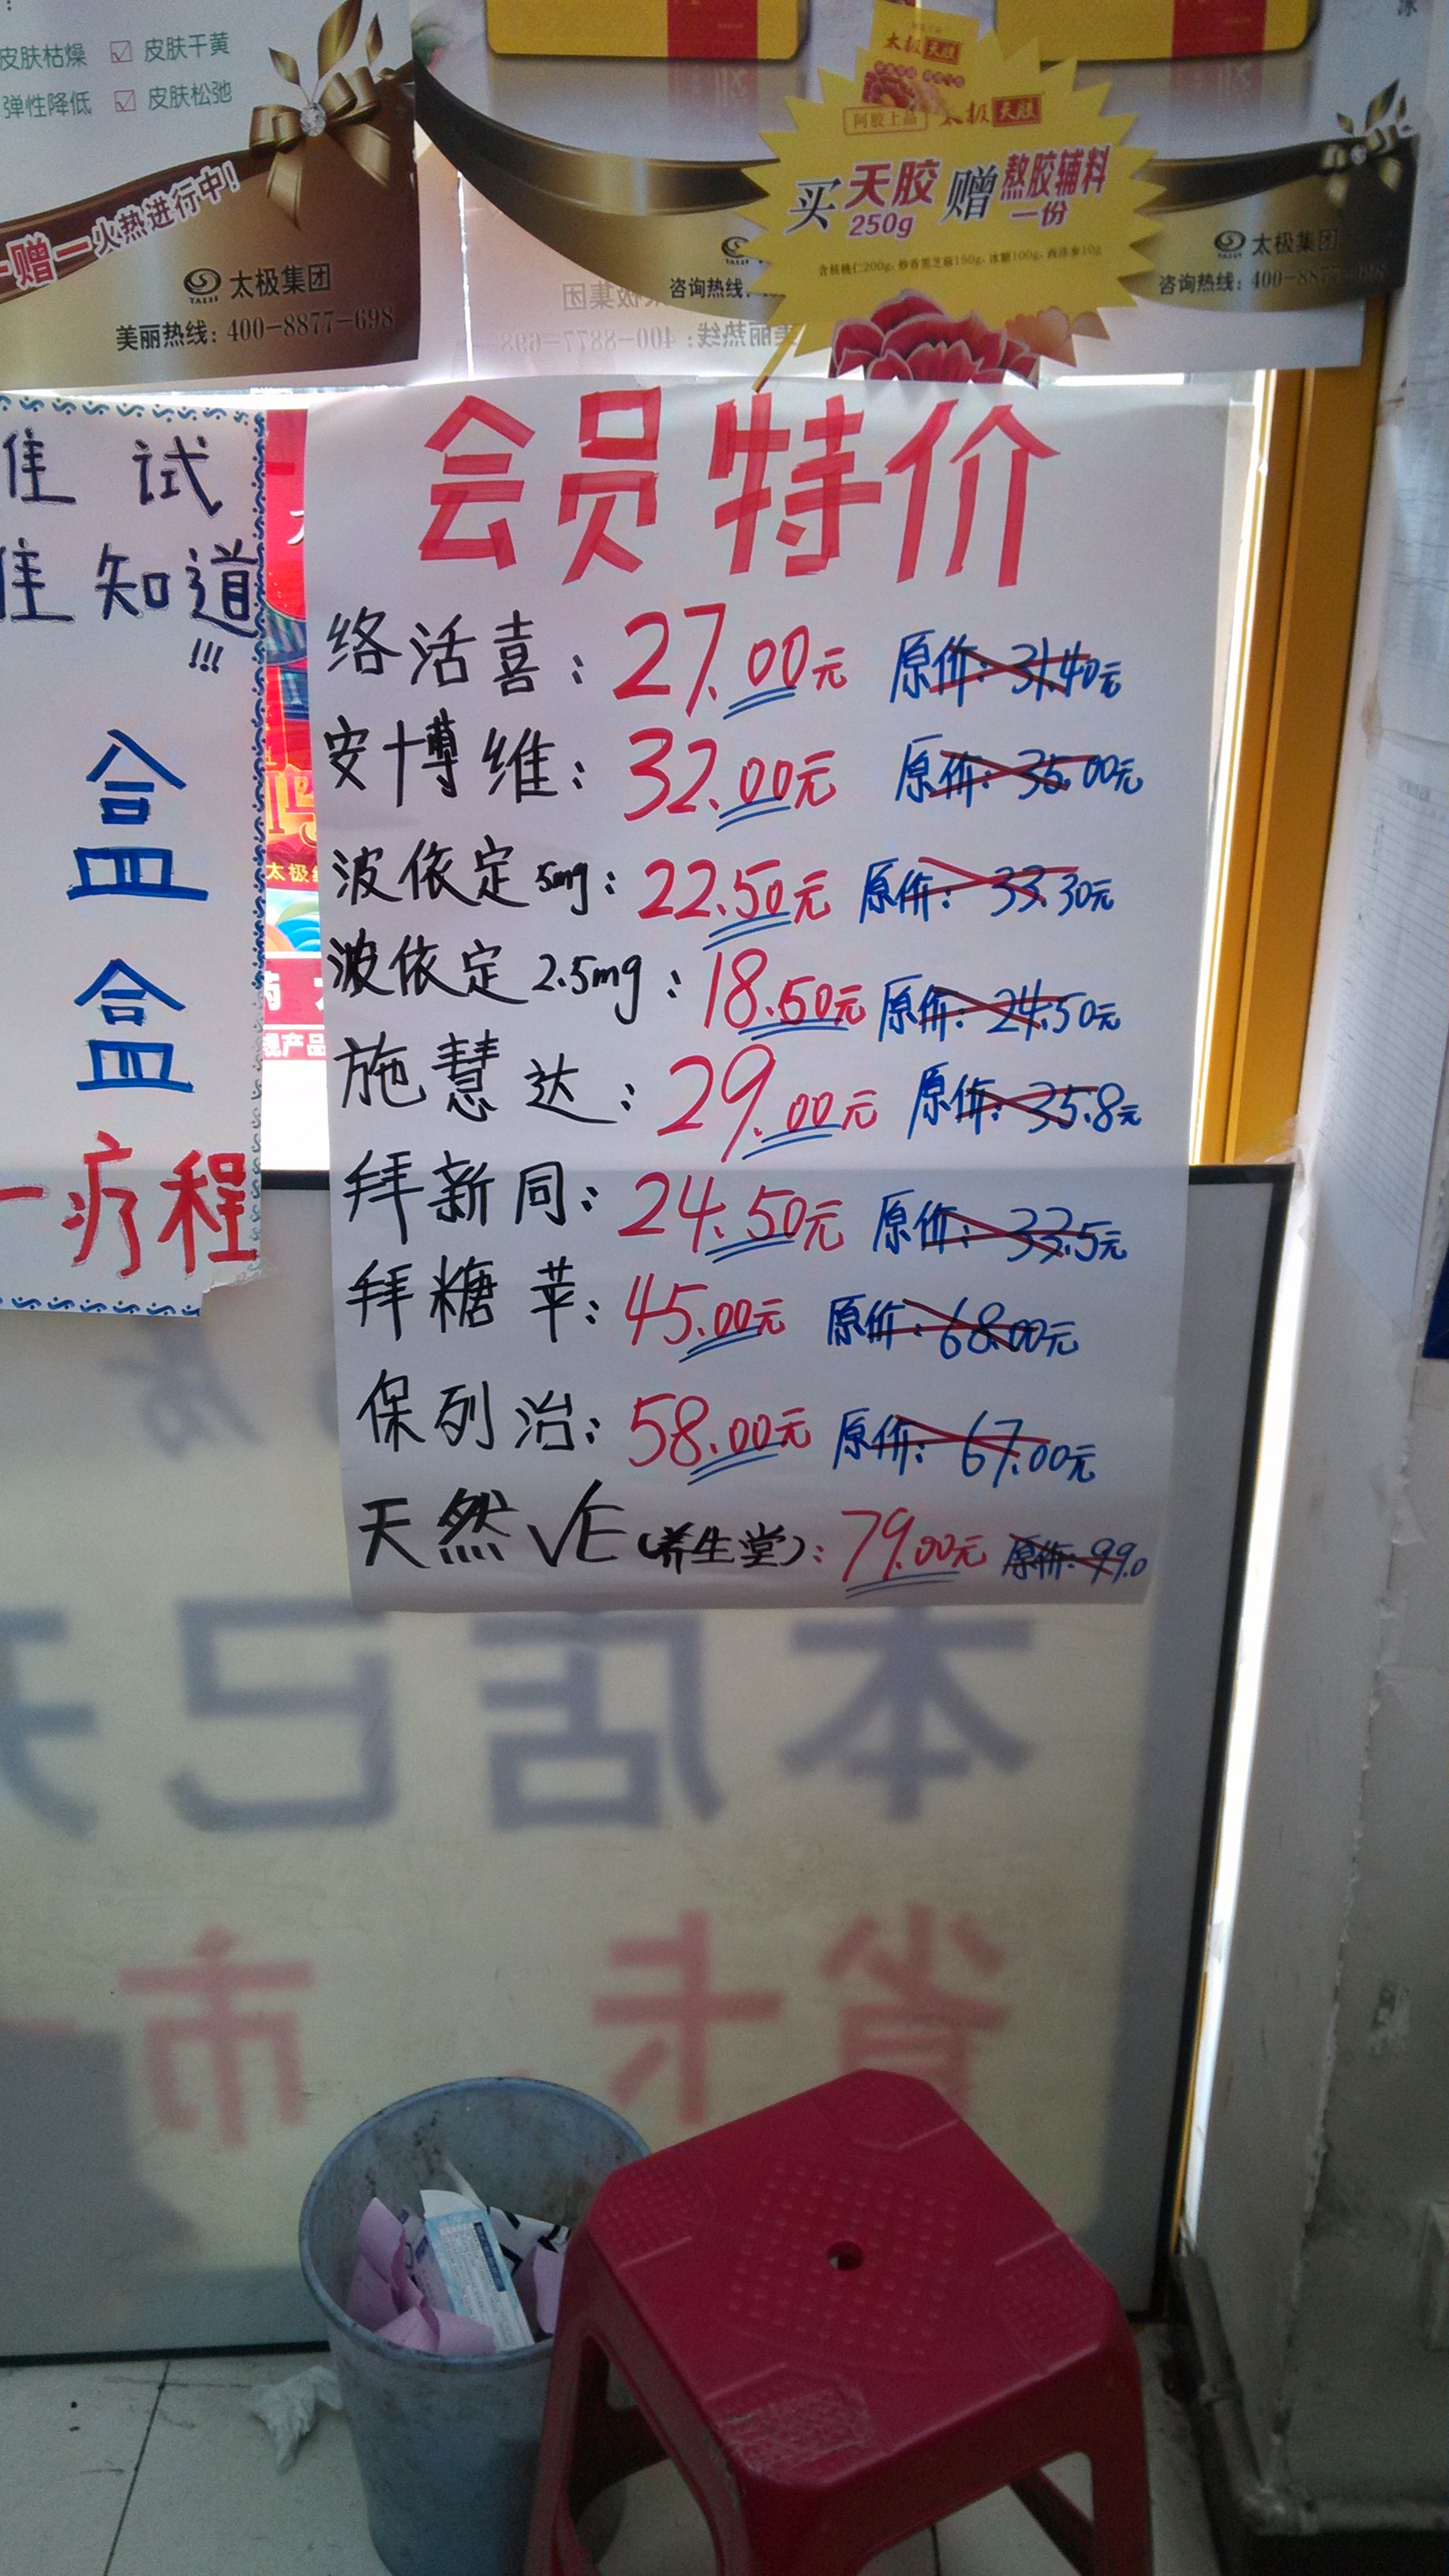 皮肤枯燥 ☑ 皮肤干黄
弹性降低 ☑ 皮肤松弛
赠一火热进行中!
太极集团
美丽热线: 400-8877-698
太极天胶
阿胶上品 太极天胶
买天胶250g赠熬胶辅料一份
含核桃仁200g、炒香黑芝麻150g、冰糖100g、西洋参10g
咨询热线:
太极集团
咨询热线: 400-8877-698
试
知道
!!!
盒
盒
一疗程
会员特价
络活喜: 27.00元 原价: 31.40元
安博维: 32.00元 原价: 35.00元
波依定5mg: 22.50元 原价: 33.30元
波依定2.5mg: 18.50元 原价: 24.50元
施慧达: 29.00元 原价: 35.8元
拜新同: 24.50元 原价: 33.5元
拜糖苹: 45.00元 原价: 68.00元
保列治: 58.00元 原价: 67.00元
天然VE(养生堂): 79.00元 原价: 99.0
本店已开
省卡 市